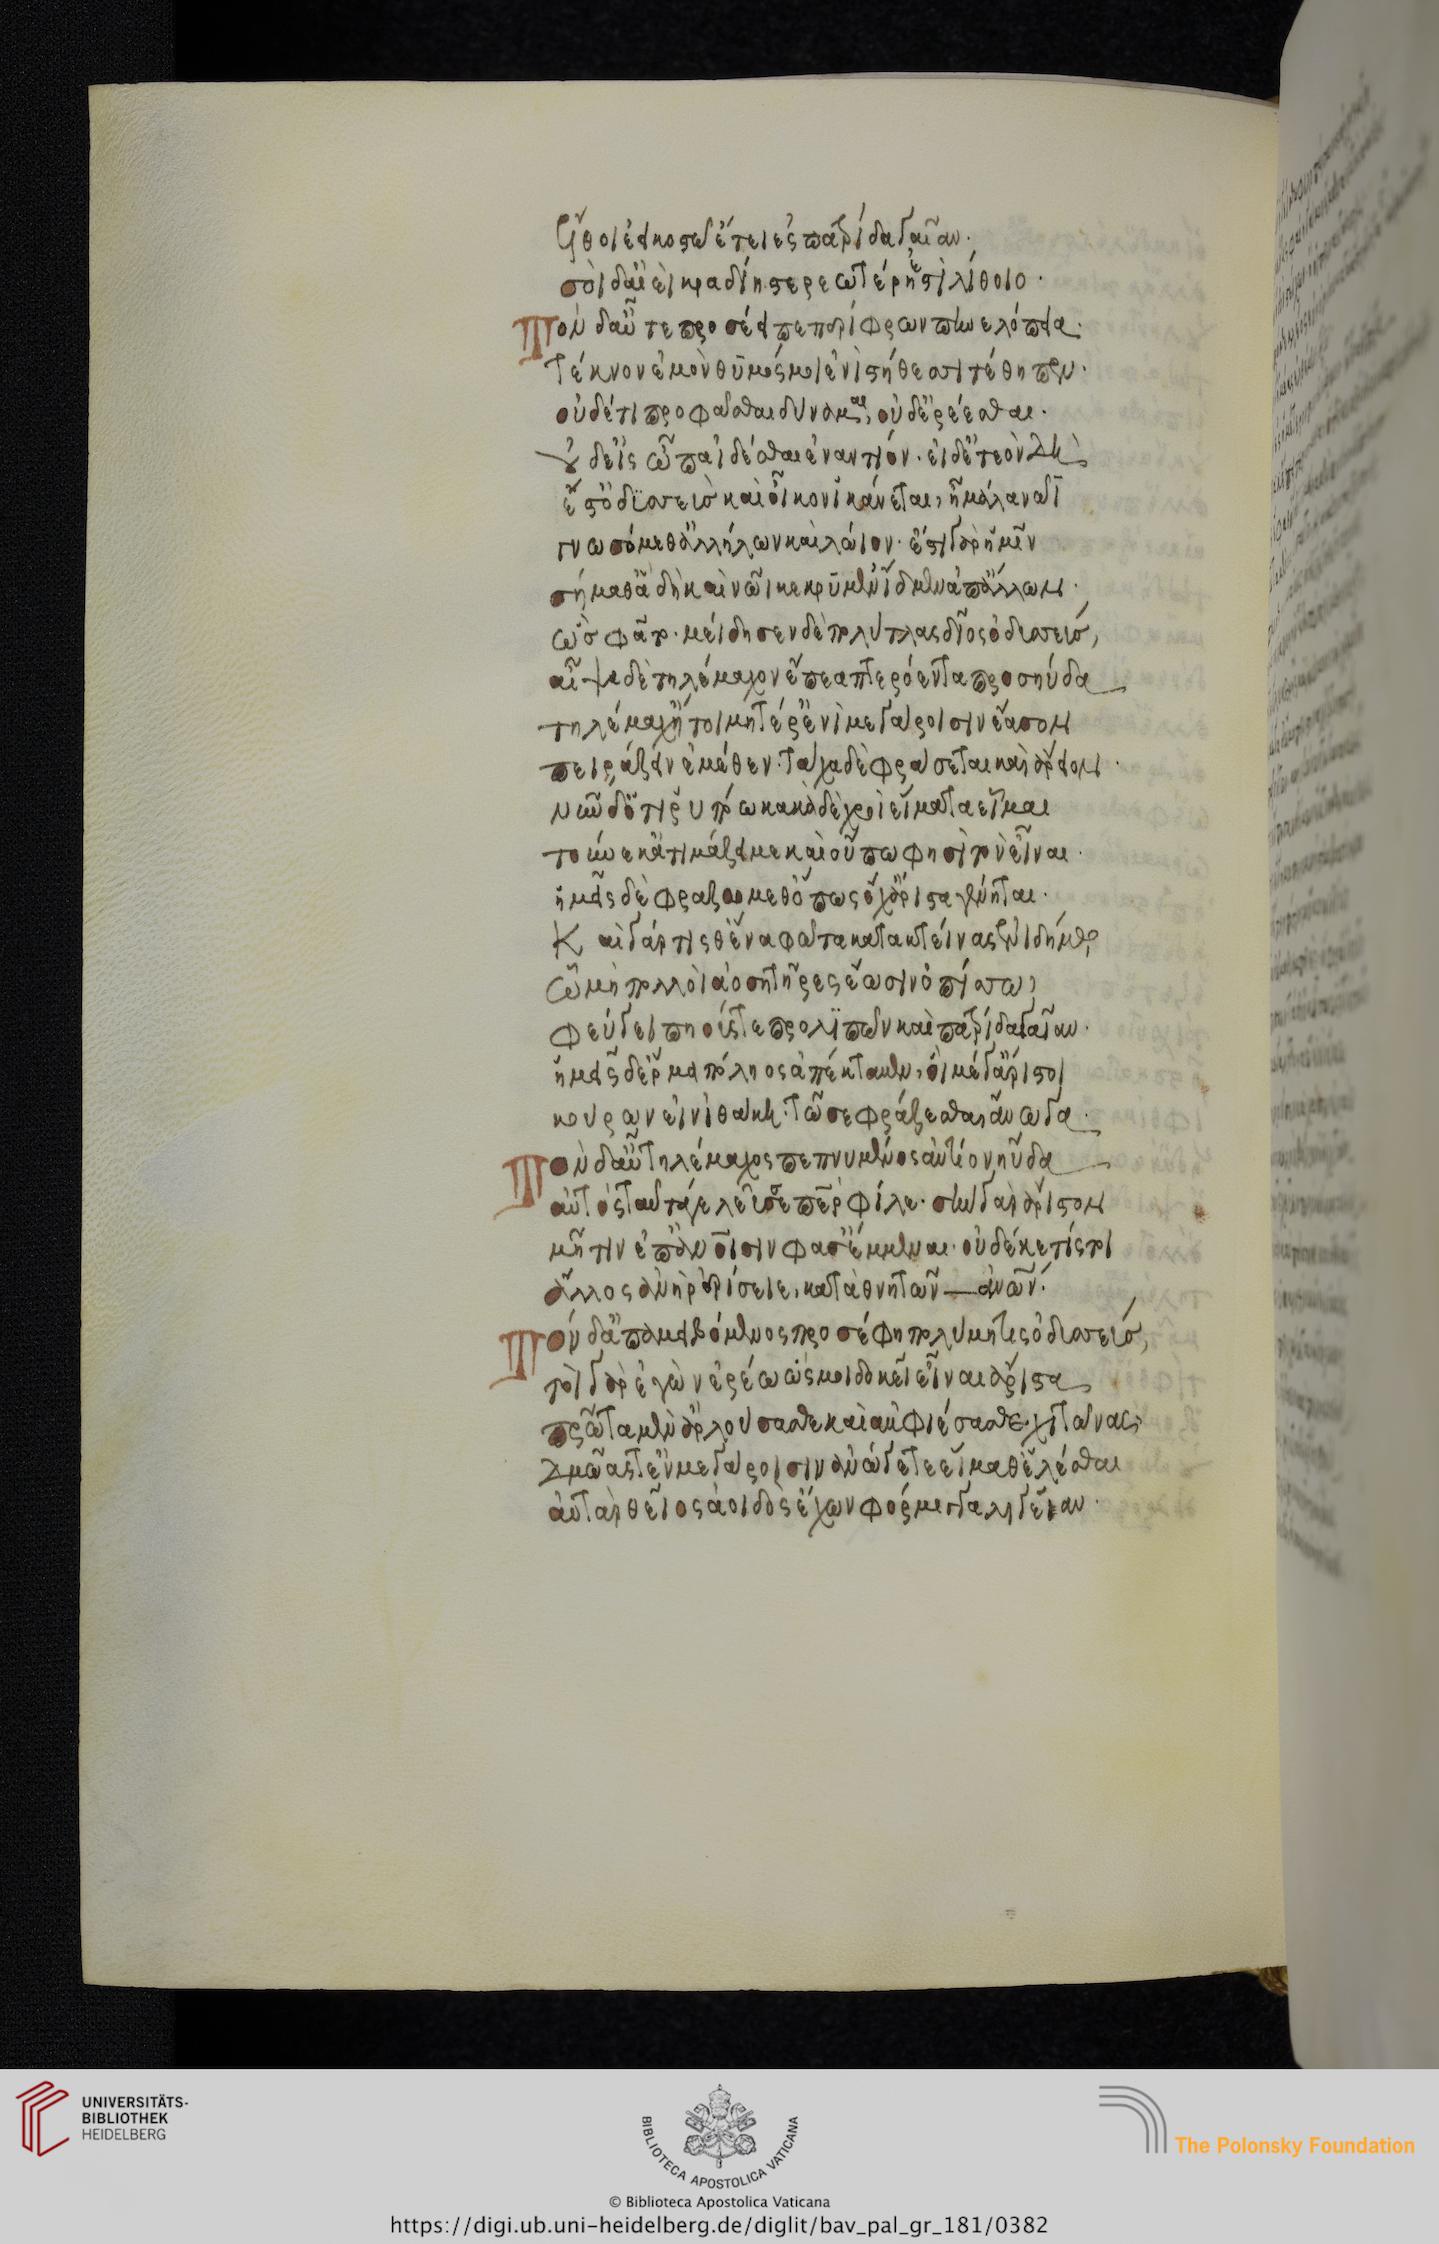 ἔλθοι ἐεικοστῷ ἔτει ἐς πατρίδα γαῖαν·
σοὶ δ' αἰεὶ κραδίη στερεωτέρη ἐστὶ λίθοιο·
Τὸν δ' αὖτε προσέειπε περίφρων πηνελόπεια·
τέκνον ἐμὸν θυμός μοι ἐνὶ στήθεσι τέθηπεν·
οὐδέ τι προσφάσθαι δύναμαι, οὐδ' ἐρέεσθαι·
οὐδ' εἰς ὦπα ἰδέσθαι ἐναντίον· εἰ δ' ἐτεὸν δὴ
ἔστ' ὀδυσεὺς καὶ οἶκον ἱκάνεται, ἦ μάλα νῶϊ
γνωσόμεθ' ἀλλήλων καὶ λώϊον· ἔστι γὰρ ἡμῖν
σήμαθ' ἃ δὴ καὶ νῶϊ κεκρυμμένα ἴδμεν ἀπ' ἄλλων·
ὣς φάτο· μείδησεν δὲ πολύτλας δῖος ὀδυσεύς,
αἶψα δὲ τηλέμαχον ἔπεα πτερόεντα προσηύδα
τηλέμαχ' ἤτοι μητέρ' ἐνὶ μεγάροισιν ἔασον
πειράζειν ἐμέθεν· τάχα δὲ φράσεται καὶ ἄρειον·
νῦν δ' ὅττι ῥυπόω κακὰ δὲ χροῒ εἵματα εἷμαι
τοὔνεκ' ἀτιμάζει με καὶ οὔπω φησὶ τὸν εἶναι·
ἡμεῖς δὲ φραζώμεθ' ὅπως ὄχ' ἄριστα γένηται·
Καὶ γάρ τίς θ' ἕνα φῶτα κατακτείνας ἐνὶ δήμῳ,
ᾧ μὴ πολλοὶ ἀοσητῆρες ἔωσιν ὀπίσσω,
φεύγει πηούς τε προλιπὼν καὶ πατρίδα γαῖαν·
ἡμεῖς δ' ἕρμα πόληος ἀπέκταμεν, οἳ μέγ' ἄριστοι
κούρων εἰν ἰθάκῃ· τῶ σε φράζεσθαι ἄνωγα·
Τὸν δ' αὖ τηλέμαχος πεπνυμένος ἀντίον ηὔδα
αὐτὸς ταῦτά γε λεῦσσε πάτερ φίλε· σὴν γὰρ ἀρίστην
μῆτιν ἐπ' ἀνθρώποισιν φάσ' ἔμμεναι· οὐδέ κέ τίς τοι
ἄλλος ἀνὴρ ἐρίσειε, καταθνητῶν ἀνθρώπων·
Τὸν δ' ἀπαμειβόμενος προσέφη πολύμητις ὀδυσεύς,
τοὶ γὰρ ἐγὼν ἐρέω ὥς μοι δοκεῖ εἶναι ἄριστα
πρῶτα μὲν ἂρ λούσασθε καὶ ἀμφιέσασθε χιτῶνας,
δμωάς τ' ἐν μεγάροισιν ἀνώγετε εἵμαθ' ἑλέσθαι
αὐτὰρ θεῖος ἀοιδὸς ἔχων φόρμιγγα λίγειαν·
UNIVERSITÄTS-
BIBLIOTHEK
HEIDELBERG
BIBLIOTECA APOSTOLICA VATICANA
The Polonsky Foundation
© Biblioteca Apostolica Vaticana
https://digi.ub.uni-heidelberg.de/diglit/bav_pal_gr_181/0382